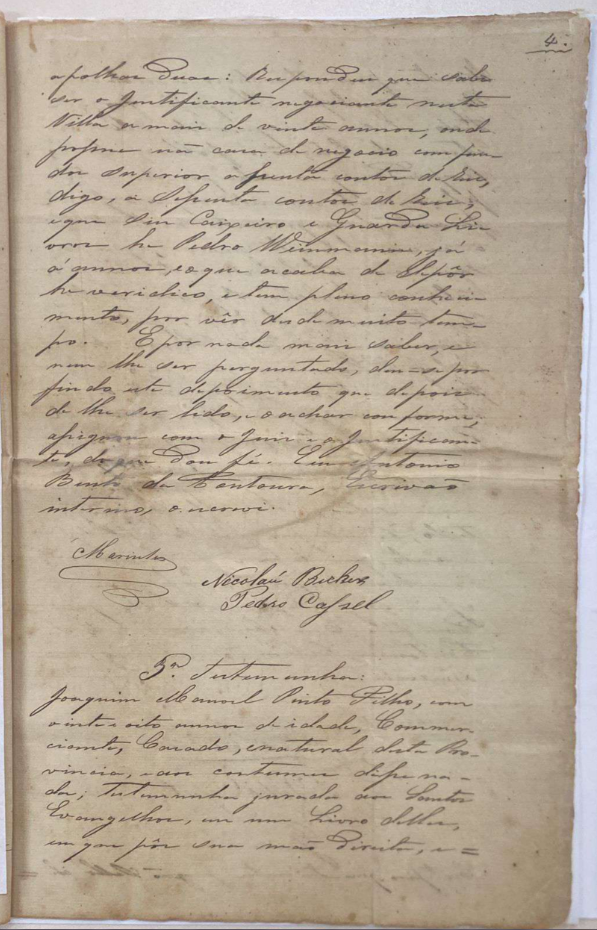 4.
a folhas duas: Respondeu que sabe
ser o Justificante negociante nesta
Villa a mais de vinte annos, onde
possue não casa de negocio com fun-
dos superior a trenta contos de reis,
digo, a Sessenta contos de reis,
e que seu Caixeiro e Guarda Li-
vros he Pedro Weinmann, já
á annos, e o que acaba de depôr
he veridico, e tem pleno conheci-
mento, por vêr desde muito tem-
po. E por nada mais saber, e
nem lhe ser perguntado, deu-se por
findo este depoimento que depois
de lhe ser lido, e o achar conforme,
assigna com o Juiz e o Justifican-
te, do que Dou fé. Eu Antonio
Bento da Fontoura, Escrivão
interino, o escrevi.
Nicolau Becker
Pedro Cassel
5ª Testemunha:
Joaquim Manoel Pinto Filho, com
vinte e oito annos de idade, Commer-
ciante, Casado, e natural desta Pro-
vincia, e aos costumes disse na-
da; testemunha jurada aos Santos
Evangelhos, em um Livro delles,
em que pôs sua mão Direita, e =